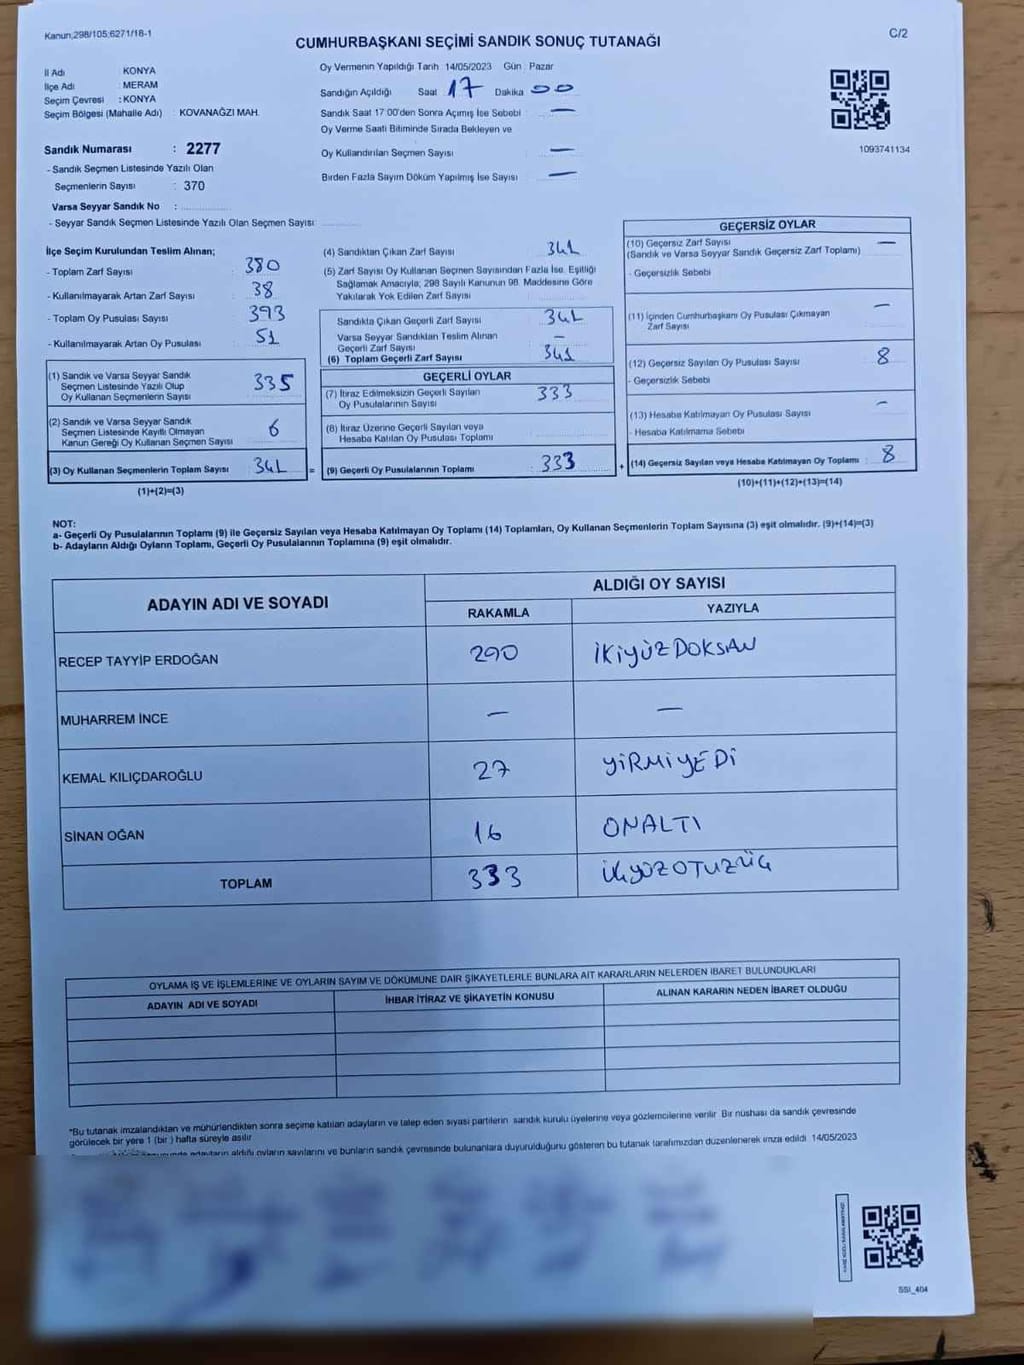 Kanun;298/105;6271/18-1
C/2
CUMHURBAŞKANI SEÇİMİ SANDIK SONUÇ TUTANAĞI
İl Adı KONYA
İlçe Adı : MERAM
Seçim Çevresi : KONYA
Seçim Bölgesi (Mahalle Adı) : KOVANAĞZI MAH.
Sandık Numarası : 2277
- Sandık Seçmen Listesinde Yazılı Olan
Seçmenlerin Sayısı : 370
Varsa Seyyar Sandık No :
- Seyyar Sandık Seçmen Listesinde Yazılı Olan Seçmen Sayısı:
Oy Vermenin Yapıldığı Tarih : 14/05/2023 Gün : Pazar
Sandığın Açıldığı Saat 17 Dakika 00
Sandık Saat 17:00'den Sonra Açımış İse Sebebi : —
Oy Verme Saati Bitiminde Sırada Bekleyen ve
Oy Kullandırılan Seçmen Sayısı —
Birden Fazla Sayım Döküm Yapılmış İse Sayısı —
1093741134
İlçe Seçim Kurulundan Teslim Alınan;
- Toplam Zarf Sayısı : 380
- Kullanılmayarak Artan Zarf Sayısı : 38
- Toplam Oy Pusulası Sayısı : 393
- Kullanılmayarak Artan Oy Pusulası : 51
(1) Sandık ve Varsa Seyyar Sandık
Seçmen Listesinde Yazılı Olup
Oy Kullanan Seçmenlerin Sayısı 335
(2) Sandık ve Varsa Seyyar Sandık
Seçmen Listesinde Kayıtlı Olmayan
Kanun Gereği Oy Kullanan Seçmen Sayısı 6
(3) Oy Kullanan Seçmenlerin Toplam Sayısı 341 =
(1)+(2)=(3)
(4) Sandıktan Çıkan Zarf Sayısı 341
(5) Zarf Sayısı Oy Kullanan Seçmen Sayısından Fazla İse, Eşitliği
Sağlamak Amacıyla; 298 Sayılı Kanunun 98. Maddesine Göre
Yakılarak Yok Edilen Zarf Sayısı
Sandıkta Çıkan Geçerli Zarf Sayısı : 341
Varsa Seyyar Sandıktan Teslim Alınan
Geçerli Zarf Sayısı : —
(6) Toplam Geçerli Zarf Sayısı 341
GEÇERLİ OYLAR
(7) İtiraz Edilmeksizin Geçerli Sayılan
Oy Pusulalarının Sayısı 333
(8) İtiraz Üzerine Geçerli Sayılan veya
Hesaba Katılan Oy Pusulası Toplamı
(9) Geçerli Oy Pusulalarının Toplamı : 333 +
GEÇERSİZ OYLAR
(10) Geçersiz Zarf Sayısı —
(Sandık ve Varsa Seyyar Sandık Geçersiz Zarf Toplamı)
- Geçersizlik Sebebi
(11) İçinden Cumhurbaşkanı Oy Pusulası Çıkmayan
Zarf Sayısı —
(12) Geçersiz Sayılan Oy Pusulası Sayısı 8
- Geçersizlik Sebebi
(13) Hesaba Katılmayan Oy Pusulası Sayısı —
- Hesaba Katılmama Sebebi
(14) Geçersiz Sayılan veya Hesaba Katılmayan Oy Toplamı : 8
(10)+(11)+(12)+(13)=(14)
NOT:
a- Geçerli Oy Pusulalarının Toplamı (9) ile Geçersiz Sayılan veya Hesaba Katılmayan Oy Toplamı (14) Toplamları, Oy Kullanan Seçmenlerin Toplam Sayısına (3) eşit olmalıdır. (9)+(14)=(3)
b- Adayların Aldığı Oyların Toplamı, Geçerli Oy Pusulalarının Toplamına (9) eşit olmalıdır.
ADAYIN ADI VE SOYADI
ALDIĞI OY SAYISI
RAKAMLA YAZIYLA
RECEP TAYYİP ERDOĞAN 290 İKİYÜZ DOKSAN
MUHARREM İNCE — —
KEMAL KILIÇDAROĞLU 27 YİRMİYEDİ
SİNAN OĞAN 16 ONALTI
TOPLAM 333
OYLAMA İŞ VE İŞLEMLERİNE VE OYLARIN SAYIM VE DÖKÜMÜNE DAİR ŞİKAYETLERLE BUNLARA AİT KARARLARIN NELERDEN İBARET BULUNDUKLARI
ADAYIN ADI VE SOYADI İHBAR İTİRAZ VE ŞİKAYETİN KONUSU ALINAN KARARIN NEDEN İBARET OLDUĞU
*Bu tutanak imzalandıktan ve mühürlendikten sonra seçime katılan adayların ve talep eden siyasi partilerin sandık kurulu üyelerine veya gözlemcilerine verilir. Bir nüshası da sandık çevresinde
görülecek bir yere 1 (bir ) hafta süreyle asılır
adayların aldığı oyların sayılarını ve bunların sandık çevresinde bulunanlara duyurulduğunu gösteren bu tutanak tarafımızdan düzenlenerek imza edildi. 14/05/2023
SSI_404